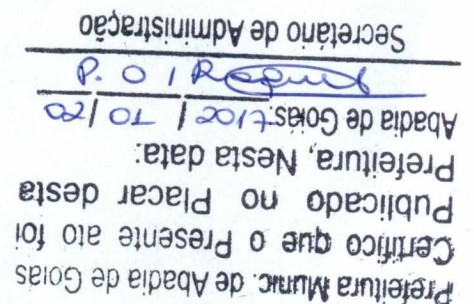 Prefeitura Munic. de Abadia de Goiás
Certifico que o Presente ato foi
Publicado no Placar desta
Prefeitura, Nesta data:
Abadia de Goiás: 02 / 01 / 2017
P. O |
Secretário de Administração